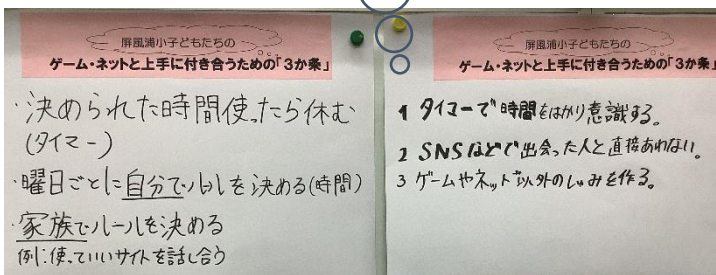 屏風浦小子どもたちの
ゲーム・ネットと上手に付き合うための「3か条」
・決められた時間使ったら休む
(タイマー)
・曜日ごとに自分でルールを決める(時間)
・家族でルールを決める
例:使っていいサイトを話し合う
屏風浦小子どもたちの
ゲーム・ネットと上手に付き合うための「3か条」
1 タイマーで時間をはかり意識する。
2 SNSなどで出会った人と直接あわない。
3 ゲームやネット以外のしゅみを作る。